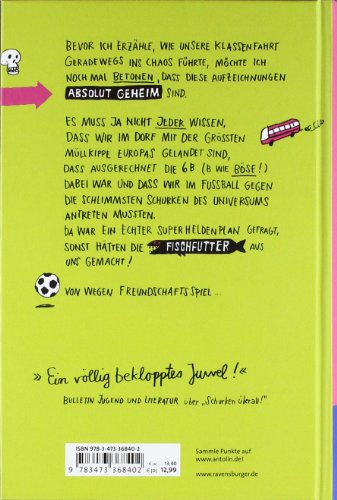 BEVOR ICH ERZÄHLE, WIE UNSERE KLASSENFAHRT
GERADEWEGS INS CHAOS FÜHRTE, MÖCHTE ICH
NOCH MAL BETONEN, DASS DIESE AUFZEICHNUNGEN
ABSOLUT GEHEIM SIND.
ES MUSS JA NICHT JEDER WISSEN,
DASS WIR IM DORF MIT DER GRÖSSTEN
MÜLLKIPPE EUROPAS GELANDET SIND,
DASS AUSGERECHNET DIE 6B (B WIE BÖSE!)
DABEI WAR UND DASS WIR IM FUSSBALL GEGEN
DIE SCHLIMMSTEN SCHURKEN DES UNIVERSUMS
ANTRETEN MUSSTEN.
DA WAR EIN ECHTER SUPERHELDENPLAN GEFRAGT,
SONST HÄTTEN DIE FISCHFUTTER AUS
UNS GEMACHT!
VON WEGEN FREUNDSCHAFTSSPIEL ...
» Ein völlig beklopptes Juwel! «
BULLETIN JUGEND UND LITERATUR über „Schurken überall!"
ISBN 978-3-473-36840-2
€ [A] 13,40
€ [D] 12,99
9 783473 368402
Sammle Punkte auf
www.antolin.de!
www.ravensburger.de